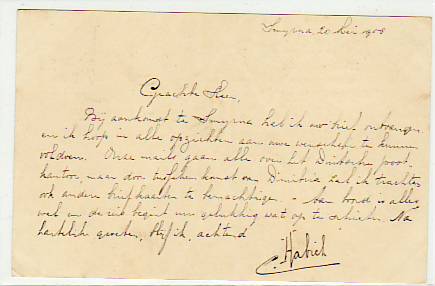 Smyrna 20 Dec 1908
Geachte Heer,
Bij aankomst te Smyrna heb ik uw brief ontvangen
en ik hoop in alle opzichten aan uwe verwachting te kunnen
voldoen. Onze mails gaan alle over het Duitsche post-
kantoor, maar door tusschenkomst van zal ik trachten
ook andere briefkaarten te bemachtigen. - Aan boord is alles
wel en de reis begint nu gelukkig wat op te schieten. Na
hartelijke groeten, blijf ik, achtend
C. Habich